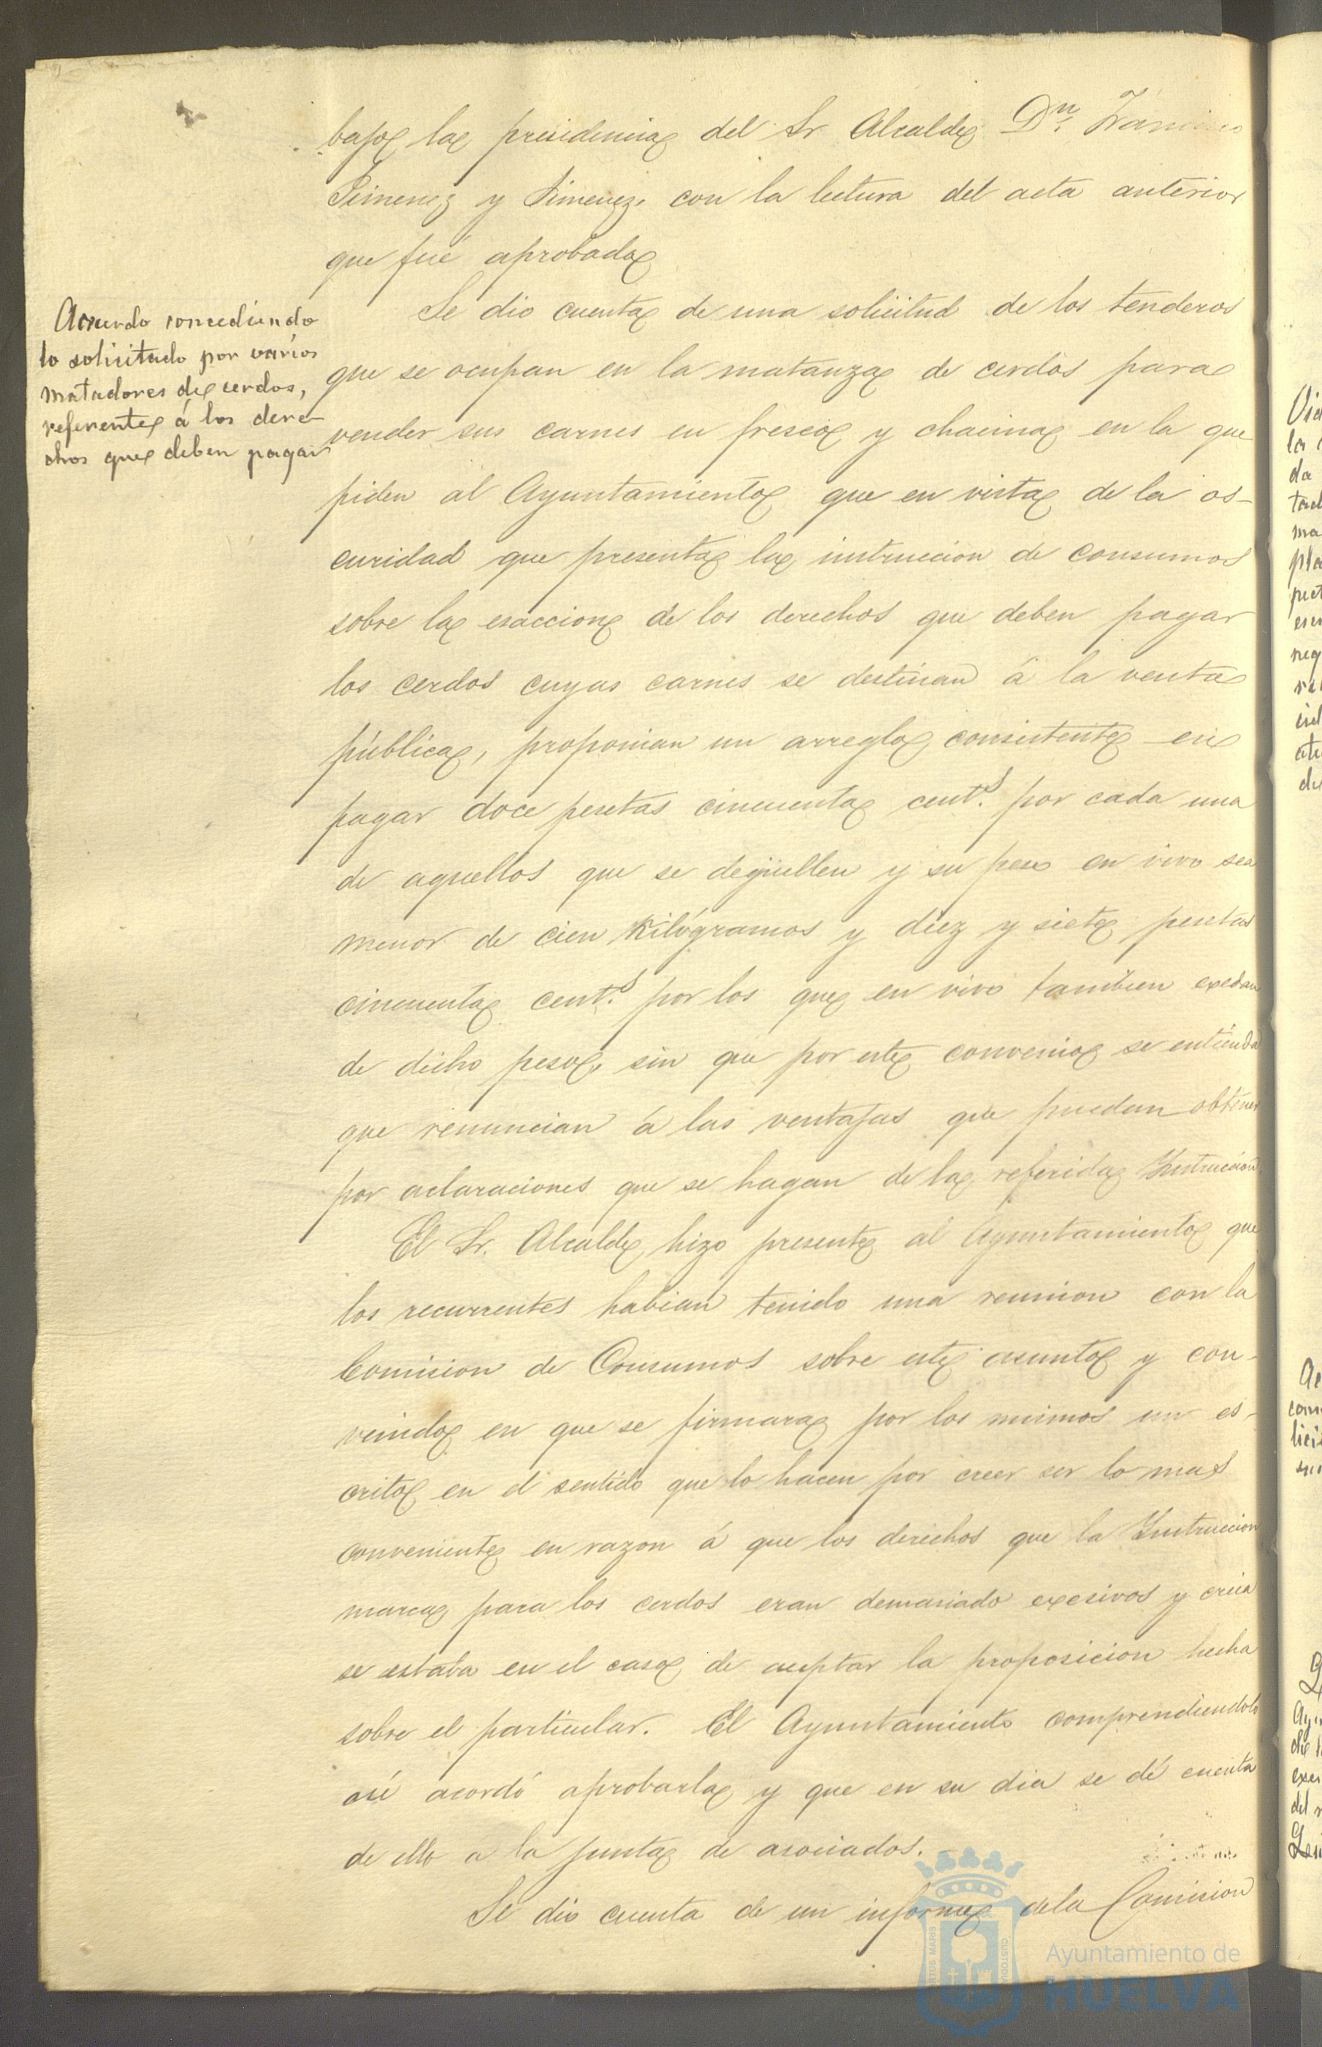 bajo la presidencia del Sr Alcalde Dn. Francisco
Jimenez y Jimenez, con la lectura del acta anterior
que fué aprobada
Acuerdo concediendo
lo solicitado por varios
matadores de cerdos,
referente á los dere-
chos que deben pagar
Se dio cuenta de una solicitud de los tenderos
que se ocupan en la matanza de cerdos para
vender sus carnes en fresco y chacina en la que
piden al Ayuntamiento que en vista de la os-
curidad que presenta la instruccion de consumos
sobre la esaccion de los derechos que deben pagar
los cerdos cuyas carnes se destinan á la venta
pública, proponian un arreglo consistente en
pagar doce pesetas cincuenta cent.s por cada una
de aquellos que se degüellen y su peso en vivo sea
menor de cien kilógramos y diez y siete pesetas
cincuenta cent.s por los que en vivo tambien exedan
de dicho peso, sin que por este convenio se entienda
que renuncian á las ventajas que puedan obtener
por aclaraciones que se hagan de la referida Instruccion
El Sr. Alcalde hizo presente al Ayuntamiento que
los recurrentes habian tenido una reunion con la
Comision de Consumos sobre este asunto y con-
venido en que se firmara por los mismos un es-
crito en el sentido que lo hacen por creer ser lo mas
conveniente en razon á que los derechos que la Instruccion
marca para los cerdos eran demasiado exesivos y creia
se estaba en el caso de aceptar la proposicion hecha
sobre el particular. El Ayuntamiento comprendiendolo
asi acordó aprobarla y que en su dia se dé cuenta
de ello a la junta de asociados.
Se dio cuenta de un informe de la Comision
Ayuntamiento de
HUELVA